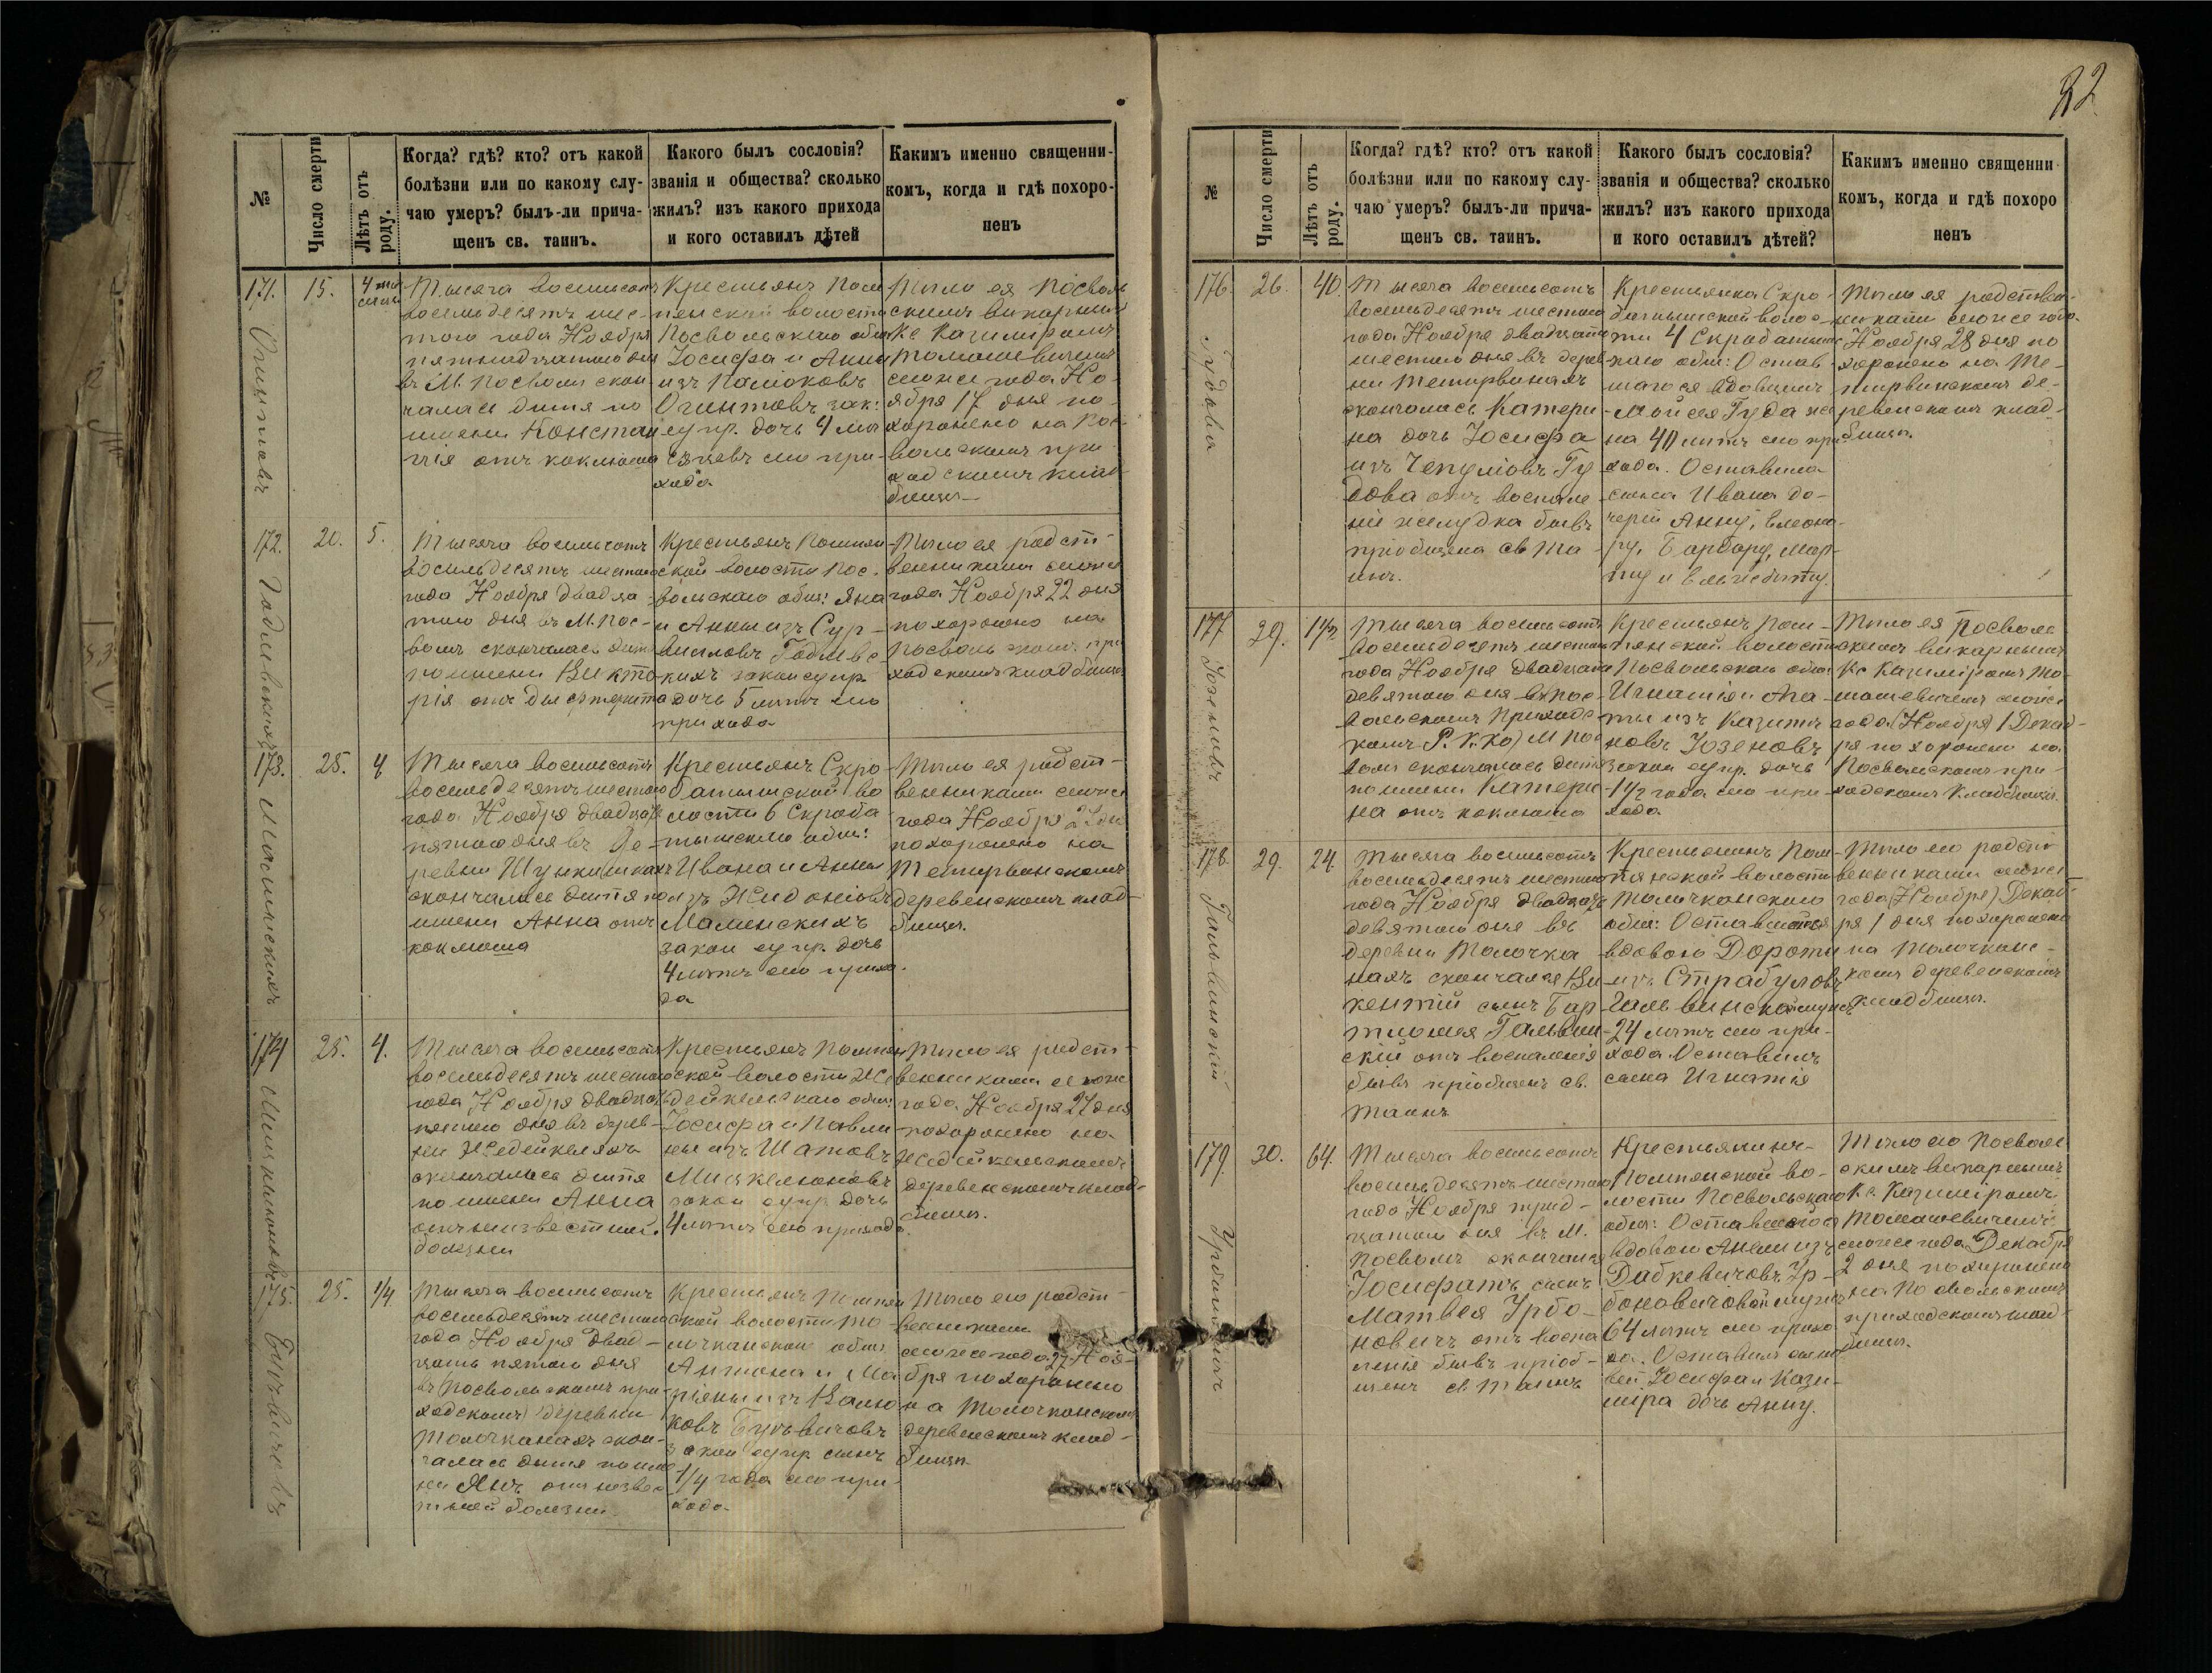 82
№
Число смерти
Лѣтъ отъ роду.
Когда? гдѣ? кто? отъ какой
болѣзни или по какому слу-
чаю умеръ? былъ-ли прича-
щенъ св. таинъ.
Какого былъ сословія?
званія и общества? сколько
жилъ? изъ какого прихода
и кого оставилъ дѣтей
Какимъ именно священни-
комъ, когда и гдѣ похоро-
ненъ
171.
15.
4
Тысяча восемьсотъ
восемьдесятъ шес-
таго года Ноября
пятнадцатаго дня
въ М. Посволи скон-
чалась дитя по
имени Констан
ція отъ коклюша
Крестьянъ Пом
пянской волости
Посвольскаго общ:
Іосифа и Анны
изъ
Огинтовъ зак:
супр. дочь 4 мѣ
сяцевъ сего при-
хода
Тѣло ея Посволь
скимъ викарнымъ
Кс Казиміромъ
Томашевичемъ
сего же года Но-
ября 17 дня по-
хоронено на Пос-
вольскомъ при
ходскомъ клад
бищѣ
172.
20.
5.
Тысяча восемьсотъ
восемьдесятъ шестаго
года Ноября двадца-
таго дня въ М. Пос-
волѣ скончалась дитя
по имени Викто
рія отъ дисфтерита
Крестьянъ Помпян
ской волости Пос-
вольскаго общ: Яна
и Анны изъ Сур-
виловъ Годлевс
кихъ закон супр
дочь 5 лѣтъ сего
прихода
Тѣло ея родст-
венниками сегоже
года Ноября 22 дня
похоронено на
Посвольскомъ при
ходскомъ кладбищѣ
173.
25.
4
Тысяча восемьсотъ
восемьдесятъ шестаго
года Ноября двадцать
пятаго дня въ Де-
ревни
скончалась дитя по
имени Анна отъ
коклюша
Крестьянъ Скро-
батишской во
лости 6 Скроба
тишскаго общ:
Ивана и Анны
изъ
закон супр. дочь
4 лѣтъ сего прихо
да
Тѣло ея родст-
венниками сегоже
года Ноября
похоронено на
Темпирванскомъ
деревенскомъ клад-
бищѣ.
174
25.
4.
Тысяча восемьсотъ
восемьдесятъ шестаго
года Ноября двадцать
пятаго дня въ дерев-
ни
скончалась дитя
по имени Анна
отъ неизвестной
болѣзни
Крестьянъ Помпян
ской волости
общ:
Іосифа и Павли
ны изъ Шатовъ
Мишкелюновъ
закон супр дочь
4 лѣтъ сего прихода.
Тѣло ея родст-
венниками сегоже
года Ноября 27 дня
похоронено на
деревенскомъ клад-
бищѣ.
175.
25.
1/4
Тысяча восемьсотъ
восемьдесятъ шестаго
года Ноября двад-
цать пятаго дня
въ Посвольскомъ при-
ходскомъ деревни
Толочканахъ скон-
чалась дитя по име
ни Янъ отъ неизвес
тной болезни
Крестьянъ Помпян
ской волости То-
лочканской общ:
Антона и Ма
ріяны изъ
закон супр. сынъ
1/4 года сего при-
хода
Тѣло его родст-
венниками
сегоже года 27 Ноя-
бря похоронено
на Толочконскомъ
деревенскомъ клад-
бищѣ
№
Число смерти
Лѣтъ отъ роду.
Когда? гдѣ? кто? отъ какой
болѣзни или по какому слу-
чаю умеръ? былъ-ли прича-
щенъ св. таинъ.
Какого былъ сословія?
званія и общества? сколько
жилъ? изъ какого прихода
и кого оставилъ дѣтей?
Какимъ именно священни
комъ, когда и гдѣ похоро
ненъ
176.
26.
40.
Гудова
Тысяча восемьсотъ
восемьдесятъ шестаго
года Ноября двадцать
шестаго дня въ дерев
ни Темпирванахъ
скончалась Катери-
на дочь Іосифа
изъ Чепуліовъ Гу
дова отъ воспале-
ніе желудка бывъ
пріобщена св Та
инъ.
Крестьянка Скро-
батишской волос-
ти 4 Скробатишс
каго общ: Остав-
шагося вдовцемъ
Мойсея Гуда же
на 40 лѣтъ сего при
хода. Оставила
сына Ивана до-
черей Анну,
Барбару, Мар-
ту и Ельжбету.
Тѣло ея родствен-
никами сегоже года
Ноября 28 дня по
хоронено на Те-
мпирванскомъ де-
ревенскомъ клад-
бищѣ.
177
29.
1 1/2
Юзеновъ
Тысяча восемьсотъ
восемьдесятъ шестаго
года Ноября двадцать
девятаго дня въ Пос-
вольскомъ Приходс-
комъ Р. К. Ко) М Пос
воли скончалась дитя
по имени Катери
на отъ коклюша
Крестьянъ Пом-
пянской волости
Посвольскаго общ:
Игнатія и Ага-
ты изъ
Юзеновъ
закон супр. дочь
1 1/2 года сего при-
хода.
Тѣло ея Посволь
скимъ викарнымъ
Кс Казиміромъ То-
машевичемъ сегоже
года (Ноября) 1 Декаб-
ря похоронено на
Посвольскомъ при-
ходскомъ кладбищѣ.
178.
29.
24.
Гальвинскій
Тысяча восемьсотъ
восемьдесятъ шестаго
года Ноября двадцать
девятаго дня въ
деревни Толочка
нахъ скончался Ви
кентій сынъ Бар
тломея Гальвин-
скій отъ воспаленія
бывъ пріобщенъ св.
Таинъ
Крестьянинъ Пом-
пянской волости
Толочконскаго
общ: Оставшейся
вдовою Дороты
изъ Страбуловъ
Гальвинской мужъ
24 лѣтъ сего при-
хода Оставилъ
сына Игнатія
Тѣло его родст
венниками сегоже
года (Ноября) Декаб-
ря 1 дня похоронено
на Толочконс-
комъ деревенскомъ
кладбищѣ.
179.
30.
64.
Урбановичъ
Тысяча восемьсотъ
восемьдесятъ шестаго
года Ноября трид-
цатаго дня въ М.
Посволѣ скончался
Іосифатъ сынъ
Матвея Урбо-
новичъ отъ воспа
ленія бывъ пріоб-
щенъ св Таинъ
Крестьянинъ
Помпянской во-
лости Посвольскаго
общ: Оставшейся
вдовою Анели изъ
Дабкевичовъ Ур-
боновичовой мужъ
64 лѣтъ сего прихо
да. Оставилъ сыно
вей Іосифа и Кази-
міра дочь Анну.
Тѣло его Посволь
скимъ викарнымъ
Кс. Казиміромъ
Томашевичемъ
сегоже года Декабря
2 дня похоронено
на Посвольскомъ
приходскомъ клад-
бищѣ.